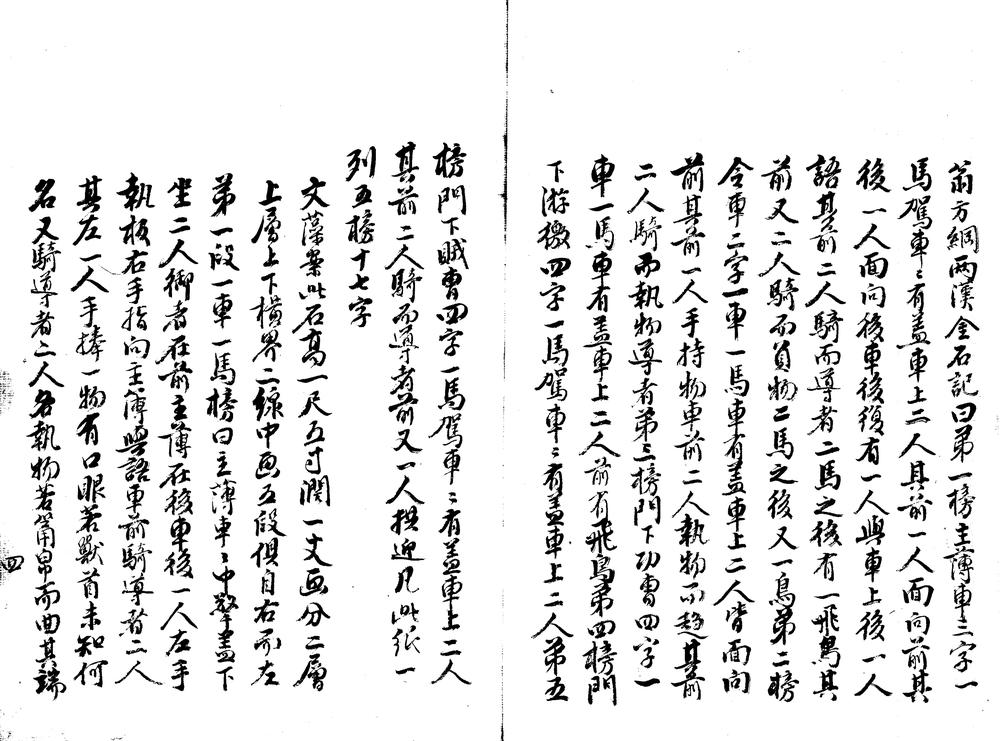 翁方綱兩漢金石記曰第一榜主薄車三字一
馬駕車〻有盖車上二人其前一人面向前其
後一人面向後車後復有一人與車上後一人
語其前二人騎而導者二馬之後有一飛鳥其
前又二人騎而負物二馬之後又一鳥第二榜
令車二字一車一馬車有盖車上二人皆面向
前其前一人手持物車前二人執物而趋其前
二人騎而執物導者第三榜門下功曹四字一
車一馬車有盖車上二人前有飛鳥第四榜門
下游徼四字一馬駕車〻有盖車上二人第五
榜門下賊曹四字一馬駕車〻有盖車上二人
其前二人騎而導者前又一人拱迎凡此紙一
列五榜十七字
文藻案此石高一尺五寸濶一丈画分二層
上層上下橫界二線中画五段俱自右而左
第一段一車一馬榜曰主薄車〻中擎盖下
坐二人御者在前主薄在後車後一人左手
執板右手指向主薄與語車前騎導者二人
其左一人手捧一物有口眼若獸首未知何
名又騎導者二人各執物若箒帚而曲其端
四